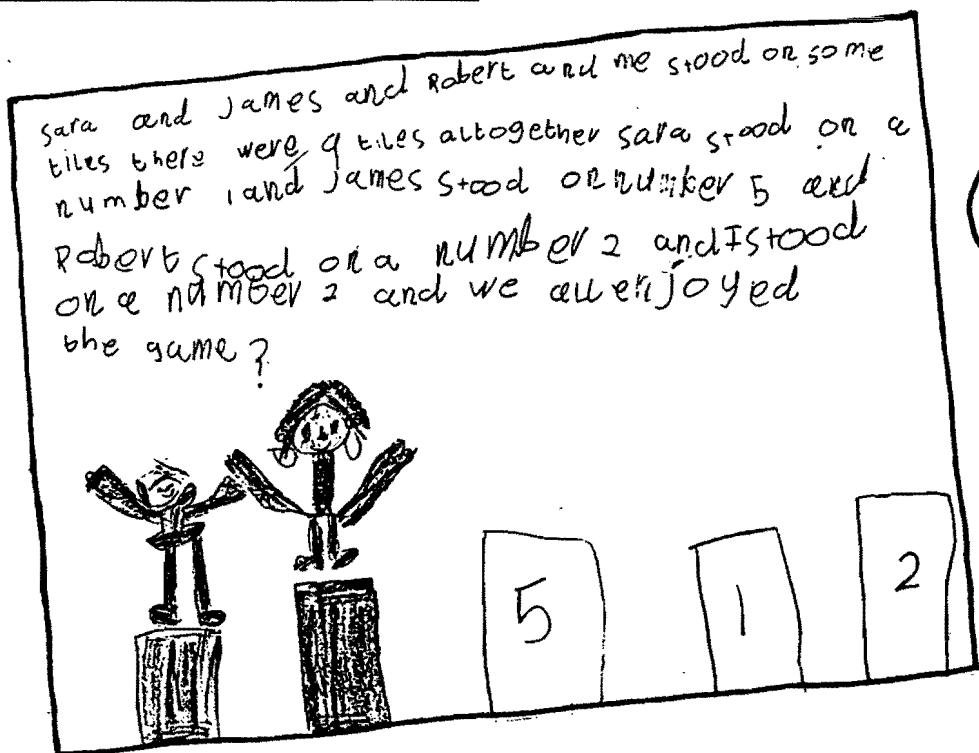 sara and James and Robert and me stood on some
tiles there were 9 tiles altogether sara stood on a
number 1 and James stood on number 5 and
Robert stood on a number 2 and I stood
on a number 2 and we all enjoyed
the game?
5 1 2